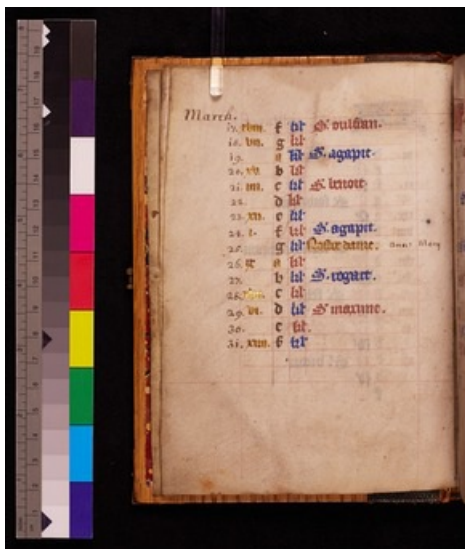 March.
17. f kl' S' vulfran.
18. vii. g kl'
19. a kl' S. agapit.
20. xv. b kl'
21. iiii. c kl' S' benoit
22. d kl'
23. xii. e kl'
24. i. f kl' S. agapit.
25. g kl' Nostre dame. Ann: Mary
26. ix a kl'
27. b kl' S. rogact.
28. c kl'
29. vi. d kl' S' maxime.
30. e kl'.
31. f kl'